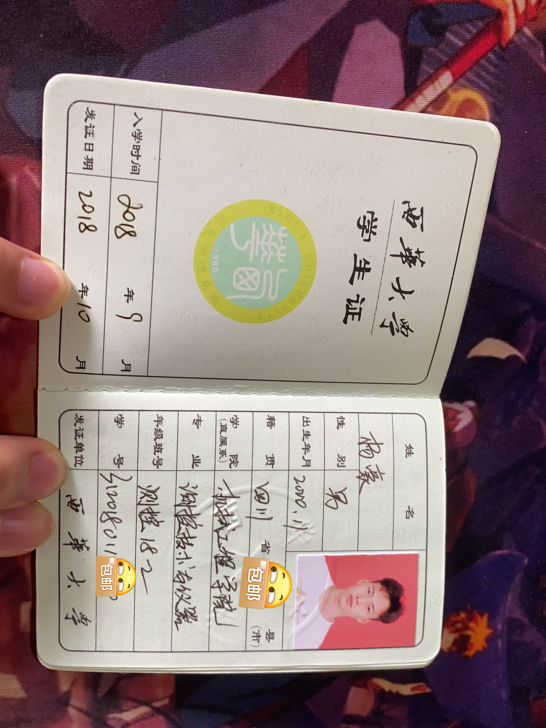 西华大学
学生证
入学时间 2018 年 9 月
发证日期 2018 年 10 月
姓 名 杨豪
性 别 男
出生年月 2000.11
籍 贯 四川 省 县(市)
学 院(直属系) 机械工程学院
专 业 测控技术与仪器
年级班号 测控 18-2
学 号
发证单位 西华大学
包邮
包邮